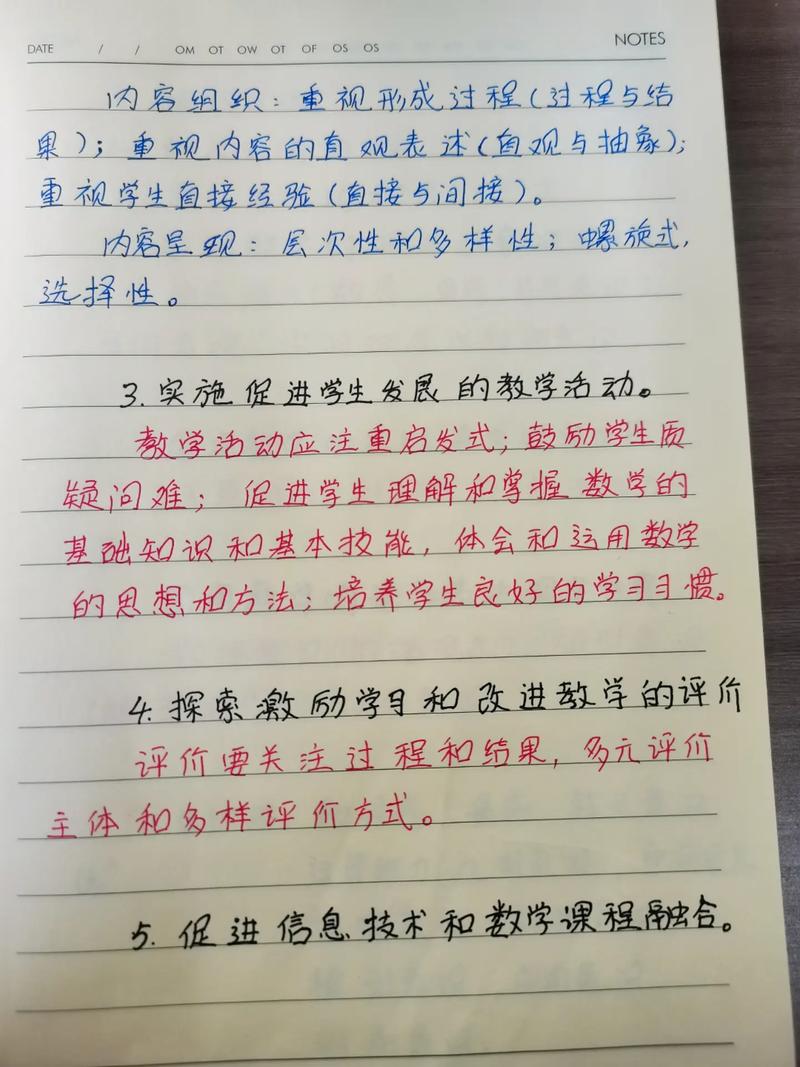 DATE / / OM OT OW OT OF OS OS NOTES
内容组织：重视形成过程（过程与结
果）；重视内容的直观表述（直观与抽象）；
重视学生直接经验（直接与间接）。
内容呈现：层次性和多样性；螺旋式，
选择性。
3. 实施促进学生发展的教学活动。
教学活动应注重启发式；鼓励学生质
疑问难；促进学生理解和掌握数学的
基础知识和基本技能，体会和运用数学
的思想和方法；培养学生良好的学习习惯。
4. 探索激励学习和改进教学的评价
评价要关注过程和结果，多元评价
主体和多样评价方式。
5. 促进信息技术和数学课程融合。